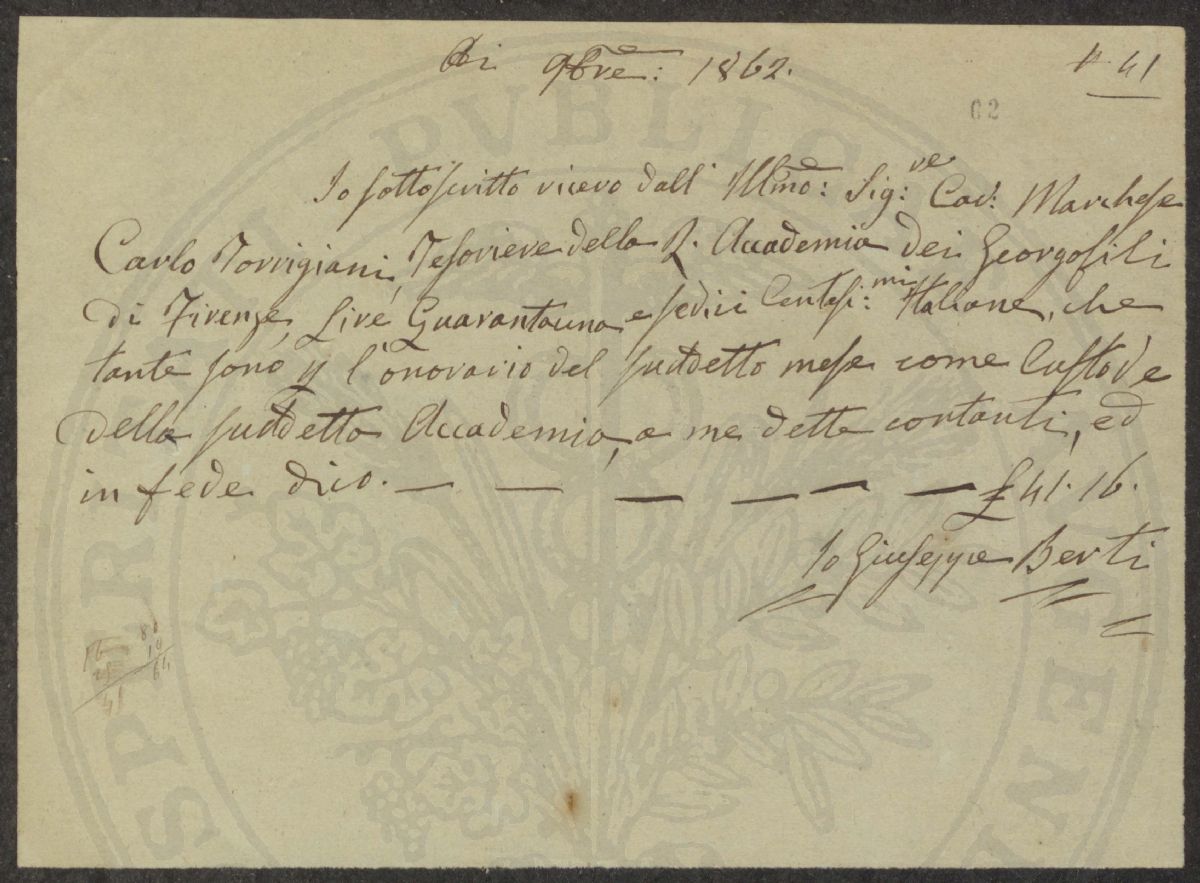 Di 9bre: 1862.
N 41
62
Io sottoscritto ricevo dall' Illmo: Sig:re Cav: Marchese
Carlo Torrigiani, Tesoriere della R. Accademia dei Georgofili
di Firenze, Lire Quarantauna e sedici Centesi:mi Italiane, che
tante sono p l'onorario del suddetto mese come Custode
della suddetta Accademia, a me dette contanti, ed
in fede dico. — — — — — — £ 41. 16.
Io Giuseppe Berti
16 80
25 10
41 64
PROSPERITATI PUBLICAE AUGENDAE